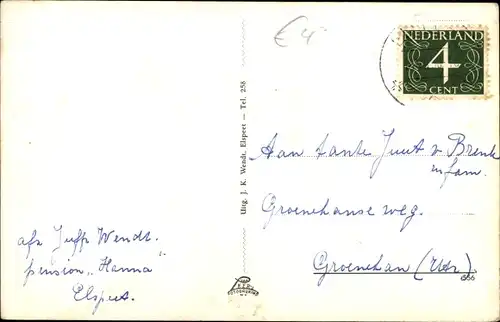 € 4
NEDERLAND
4
CENT
Uitg. J. K. Wendt, Elspeet — Tel. 258
Aan tante Juut v Brenk
en fam.
Groenekanse weg.
Groenekan (Utr.)
afz Juffr Wendt.
pension "Hanna"
Elspeet.